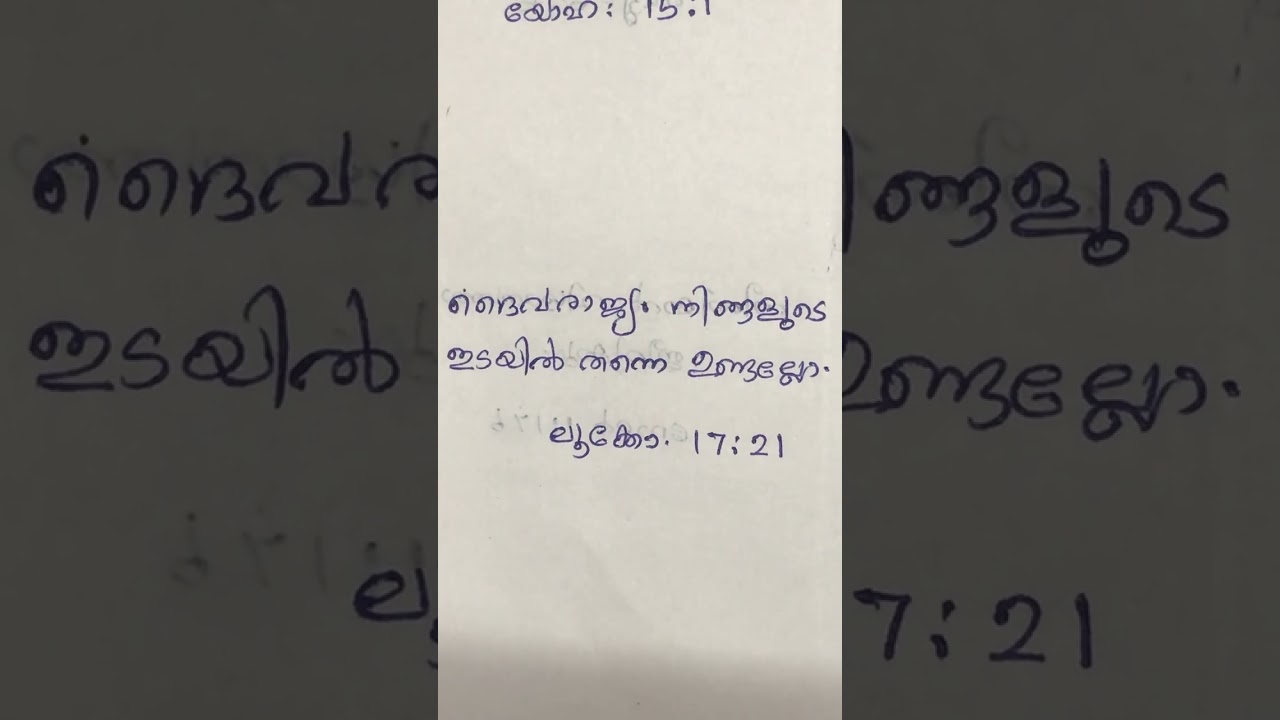 യോഹ: 15:1
ദൈവരാജ്യം നിങ്ങളുടെ
ഇടയിൽ തന്നെ ഉണ്ടല്ലോ.
ലൂക്കോ. 17:21